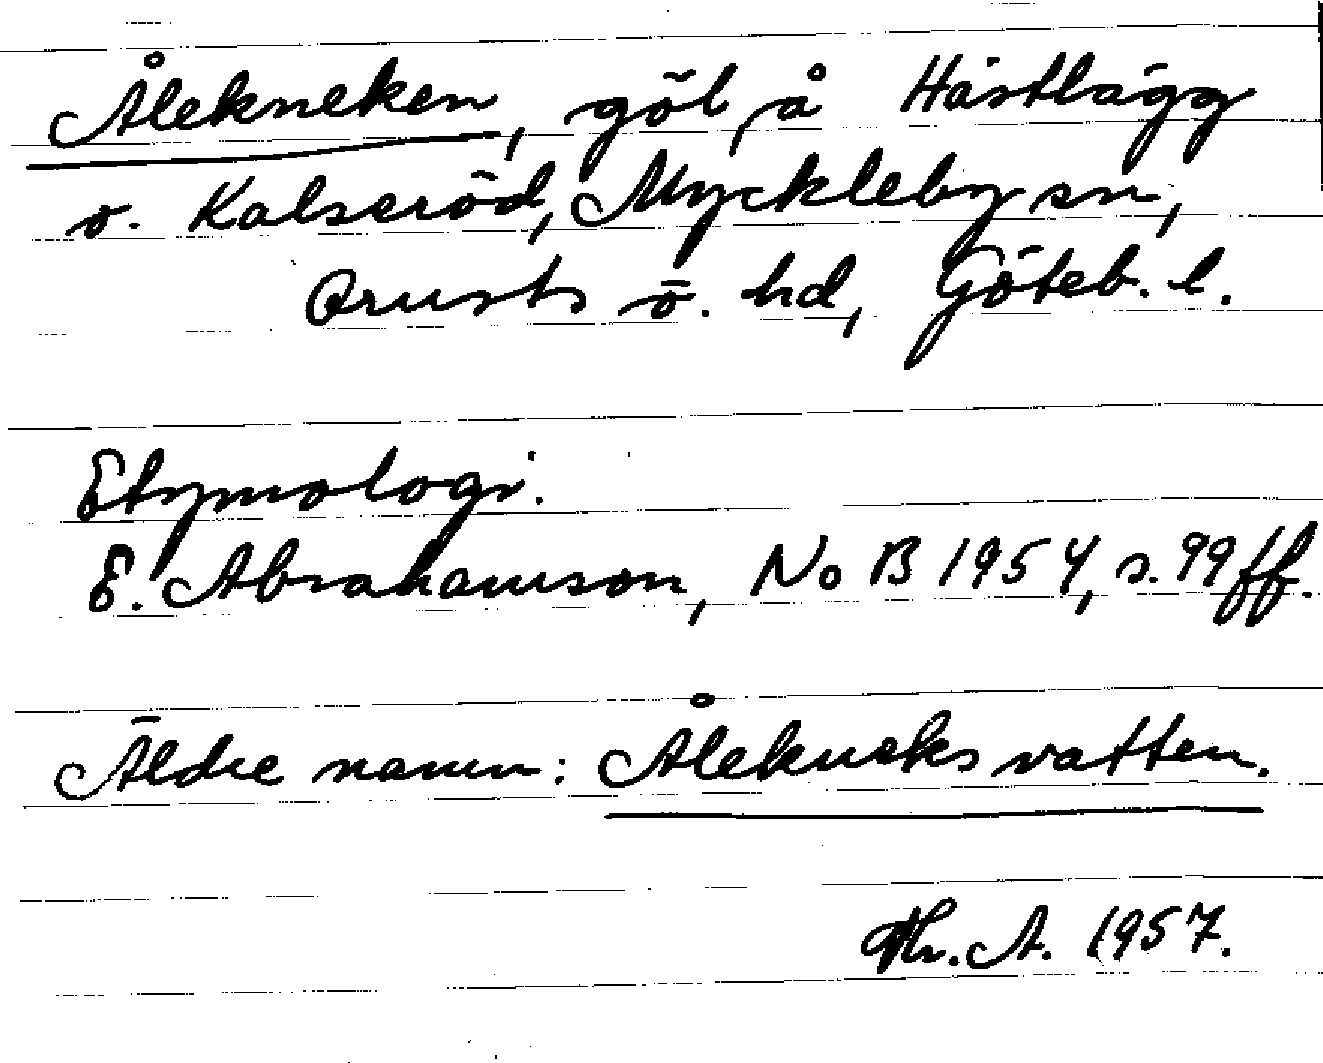 Ålekneken, göl, å Hästlägg
v. Kalseröd, Myckleby sn,
Orusts ö. hd, Göteb. l.
Etymologi.
E. Abrahamson, NoB 1954, s. 99 ff.
Äldre namn: Ålekneks vatten.
Thr. A. 1957.